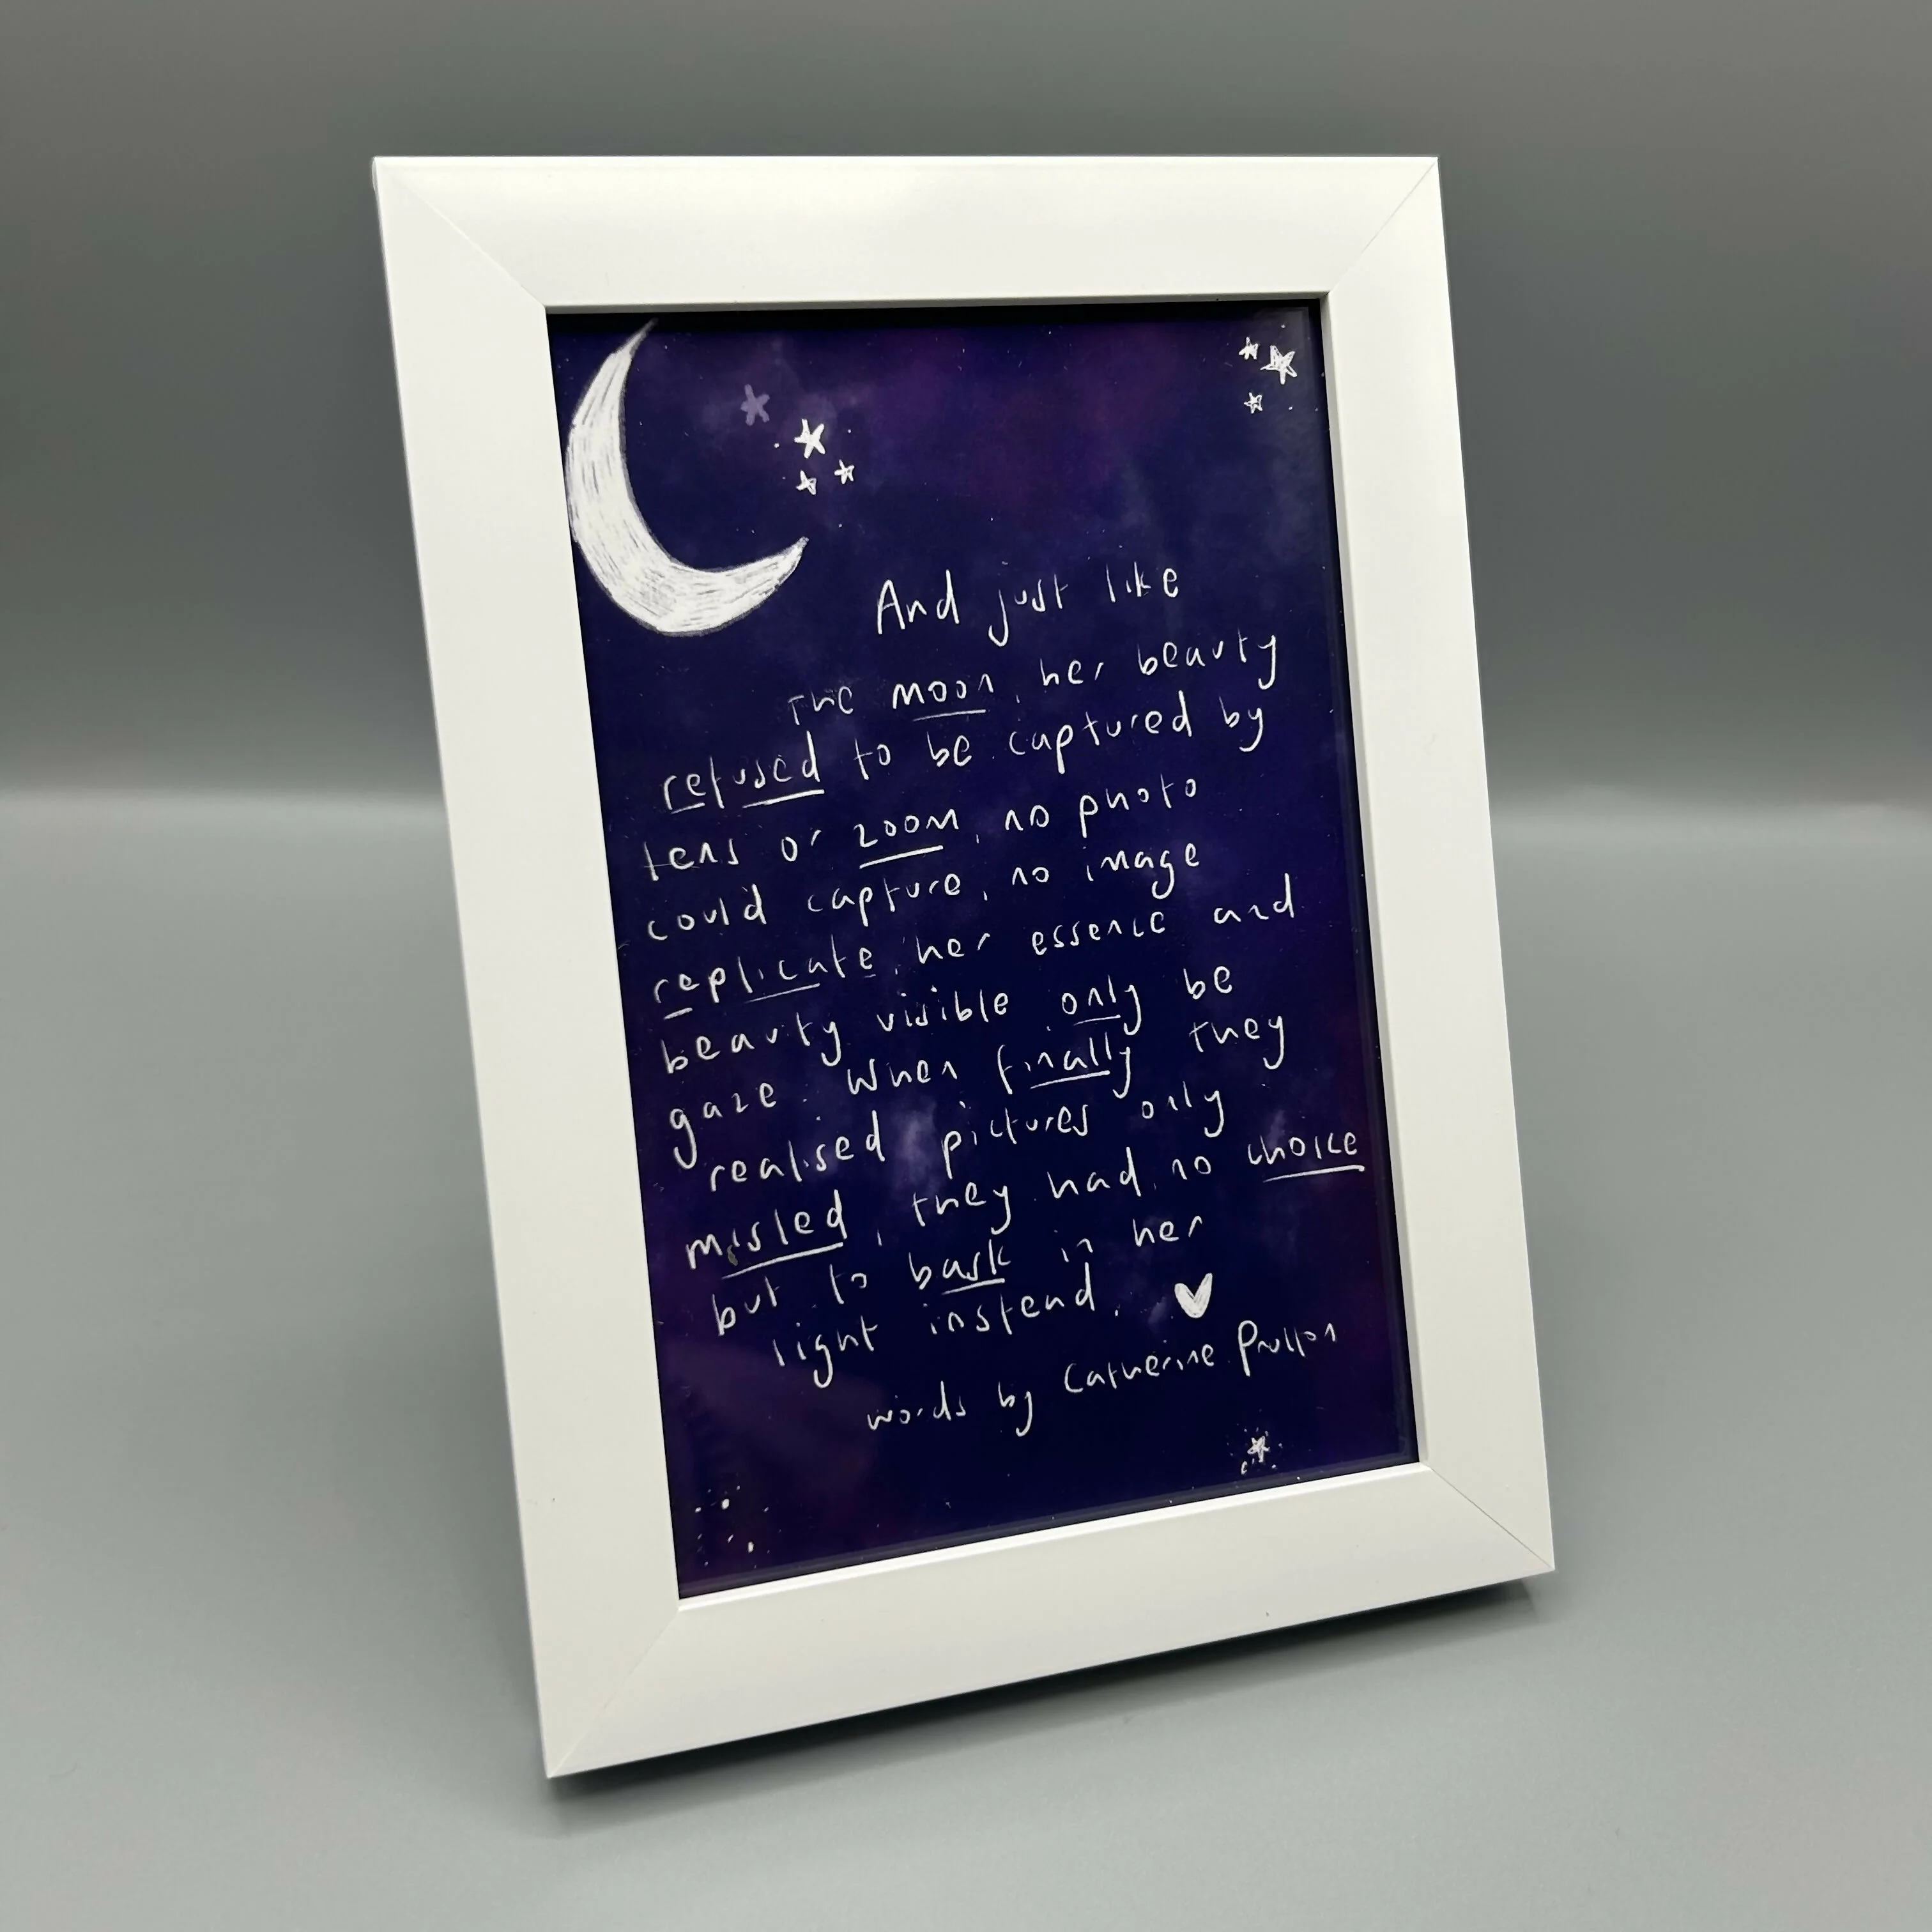 And just like
the moon, her beauty
refused to be captured by
lens or zoom, no photo
could capture, no image
replicate, her essence and
beauty visible only be
gaze. When finally they
realised pictures only
misled, they had no choice
but to bask in her
light instead.
words by Catherine